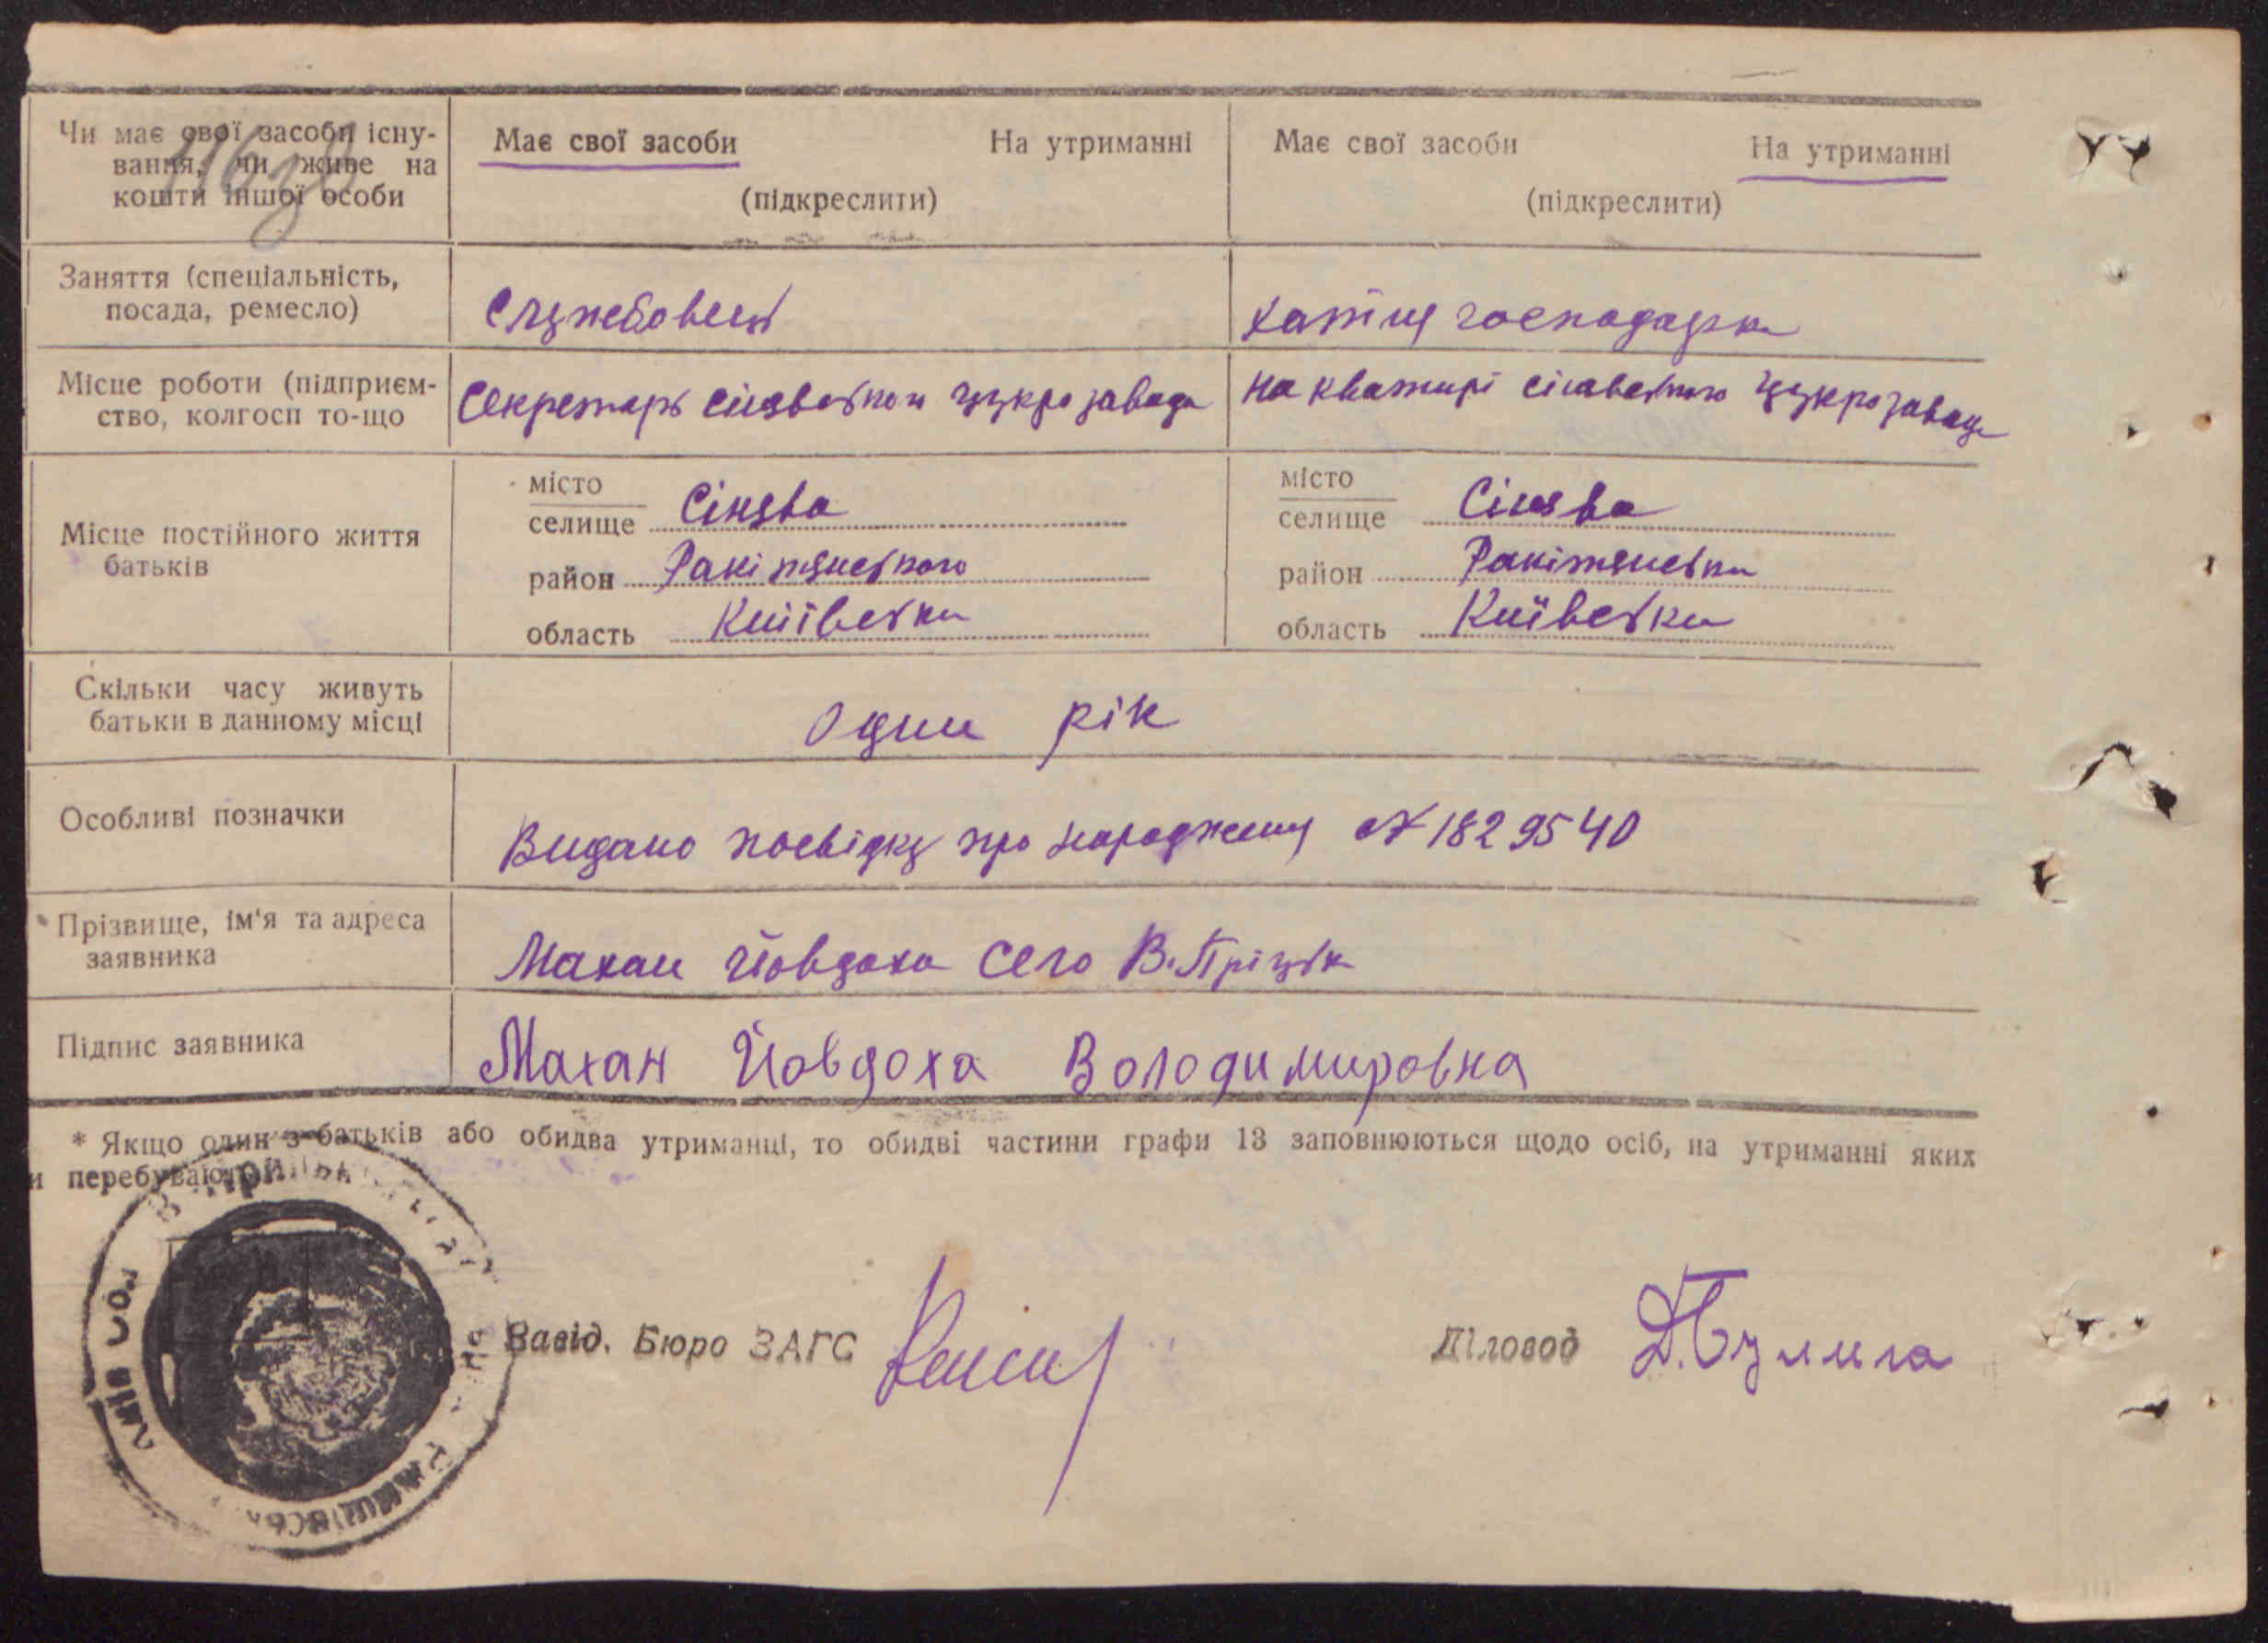 Чи має свої засоби існу-
вання, чи живе на
кошти іншої особи
Має свої засоби На утриманні
(підкреслити)
Має свої засоби На утриманні
(підкреслити)
Заняття (спеціальність,
посада, ремесло)
Службовець
хатня господарка
Місце роботи (підприєм-
ство, колгосп то-що
Секретарь сінявського цукрозавода
на квартирі сінявського цукрозавода
Місце постійного життя
батьків
місто
селище Сінява
район Ракітянського
область Київська
місто
селище Сінява
район Ракітянська
область Київська
Скільки часу живуть
батьки в данному місці
Один рік
Особливі позначки
Видано посвідку про народження № 1829540
Прізвище, ім'я та адреса
заявника
Махан Йовдоха село В. Пріцьк
Підпис заявника
Махан Йовдоха Володимировна
* Якщо один з батьків або обидва утриманці, то обидві частини графи 13 заповнюються щодо осіб, на утриманні яких
и перебувають
Завід. Бюро ЗАГС
Діловод Д. Булига